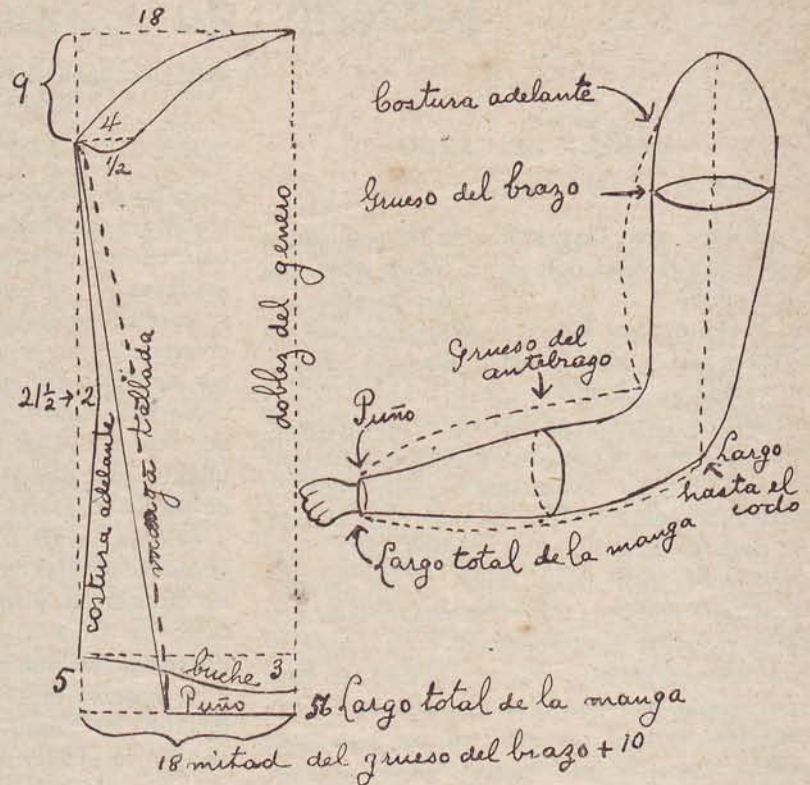 18
9
4
½
21½→2
costura adelante
manga tallada
doblez del genero
5
buche 3
Puño
56 Largo total de la manga
18 mitad del grueso del brazo + 10
Costura adelante
Grueso del brazo
Grueso del
antebrazo
Puño
Largo
hasta el
codo
Largo total de la manga